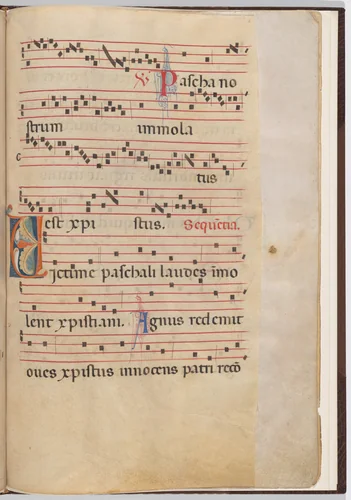 ℣. Pascha no
strum immola
tus
est xpi stus. Sequētia.
Victime paschali laudes īmo
lent xpistiani. Agnus redemit
oues xpistus innocens patri recō